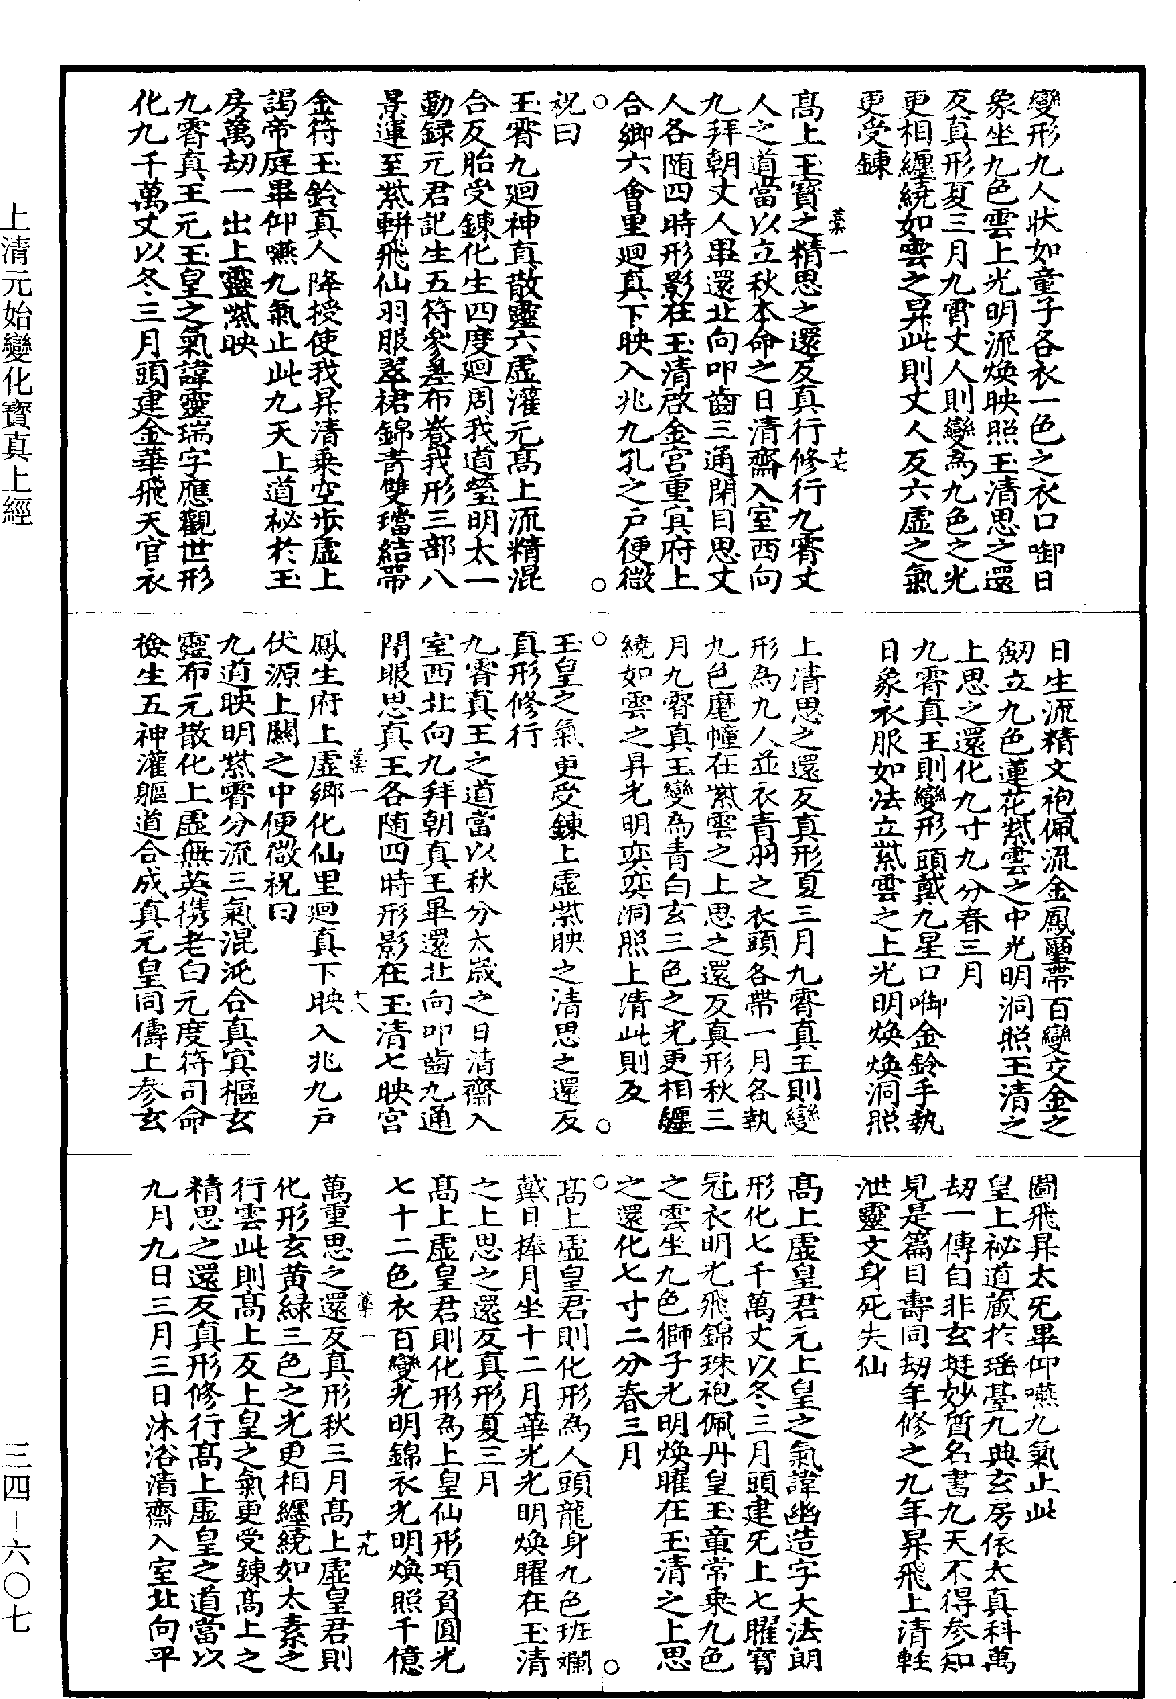 變形九人狀如童子各衣一色之衣口啣日
象坐九色雲上光明流煥映照玉清思之還
反真形夏三月九霄丈人則變為九色之光
更相纏繞如雲之昇此則丈人反六虛之氣
更受鍊
高上玉寶之精思之還反真行修行九霄丈
人之道當以立秋本命之日清齋入室西向
九拜朝丈人畢還北向叩齒三通閉目思丈
人各随四時形影在玉清啓金宮重冥府上
合鄉六會里廻真下映入兆九孔之戶便微
祝曰
玉霄九廻神真散靈六虛灌元高上流精混
合反胎受鍊化生四度廻周我道瑩明太一
勤録元君記生五符參差布養我形三部八
景運至紫軿飛仙羽服翠裙錦青雙璫結帶
金符玉鈴真人降授使我昇清乗空歩虛上
謁帝庭畢仰嚥九氣止此九天上道祕於玉
房萬劫一出上靈紫映
九霄真王元玉皇之氣諱靈瑞字應觀世形
化九千萬丈以冬三月頭建金華飛天官衣
日生流精文袍佩流金鳳璽帶百變交金之
劒立九色蓮花紫雲之中光明洞照玉清之
上思之還化九寸九分春三月
九霄真王則變形頭戴九星口啣金鈴手執
日象衣服如法立紫雲之上光明煥煥洞照
上清思之還反真形夏三月九霄真王則變
形為九人並衣青羽之衣頭各帶一月各執
九色麾幢在紫雲之上思之還反真形秋三
月九霄真王變為青白玄三色之光更相纏
繞如雲之昇光明奕奕洞照上清此則反
玉皇之氣更受鍊上虛紫映之清思之還反
真形修行
九霄真王之道當以秋分太歲之日清齋入
室西北向九拜朝真王畢還北向叩齒九通
閉眼思真王各随四時形影在玉清七映宮
鳳生府上虛鄉化仙里廻真下映入兆九戶
伏源上關之中便微祝曰
九道映明紫霄分流三氣混沌合真冥樞玄
靈布元散化上虛無英携老白元度符司命
檢生五神灌軀道合成真元皇同儔上參玄
圖飛昇太旡畢仰嚥九氣止此
皇上祕道藏於瑶臺九典玄房依太真科萬
劫一傳自非玄挺妙質名書九天不得参知
見是篇目壽同劫年修之九年昇飛上清輕
泄靈文身死失仙
高上虛皇君元上皇之氣諱幽造字大法朗
形化七千萬丈以冬三月頭建旡上七曜寶
冠衣明光飛錦珠袍佩丹皇玉章常乗九色
之雲坐九色獅子光明煥曜在玉清之上思
之還化七寸二分春三月
高上虛皇君則化形為人頭龍身九色班斕
戴日捧月坐十二月華光光明煥曜在玉清
之上思之還反真形夏三月
高上虛皇君則化形為上皇仙形項負圓光
七十二色衣百變光明錦衣光明煥照千億
萬重思之還反真形秋三月高上虛皇君則
化形玄黃緑三色之光更相纏繞如太素之
行雲此則高上反上皇之氣更受鍊高上之
精思之還反真形修行高上虛皇之道當以
九月九日三月三日沐浴清齋入室北向平
藁一
十七
藁一
十八
藁一
十九
上清元始變化寶真上經
三四－六〇七